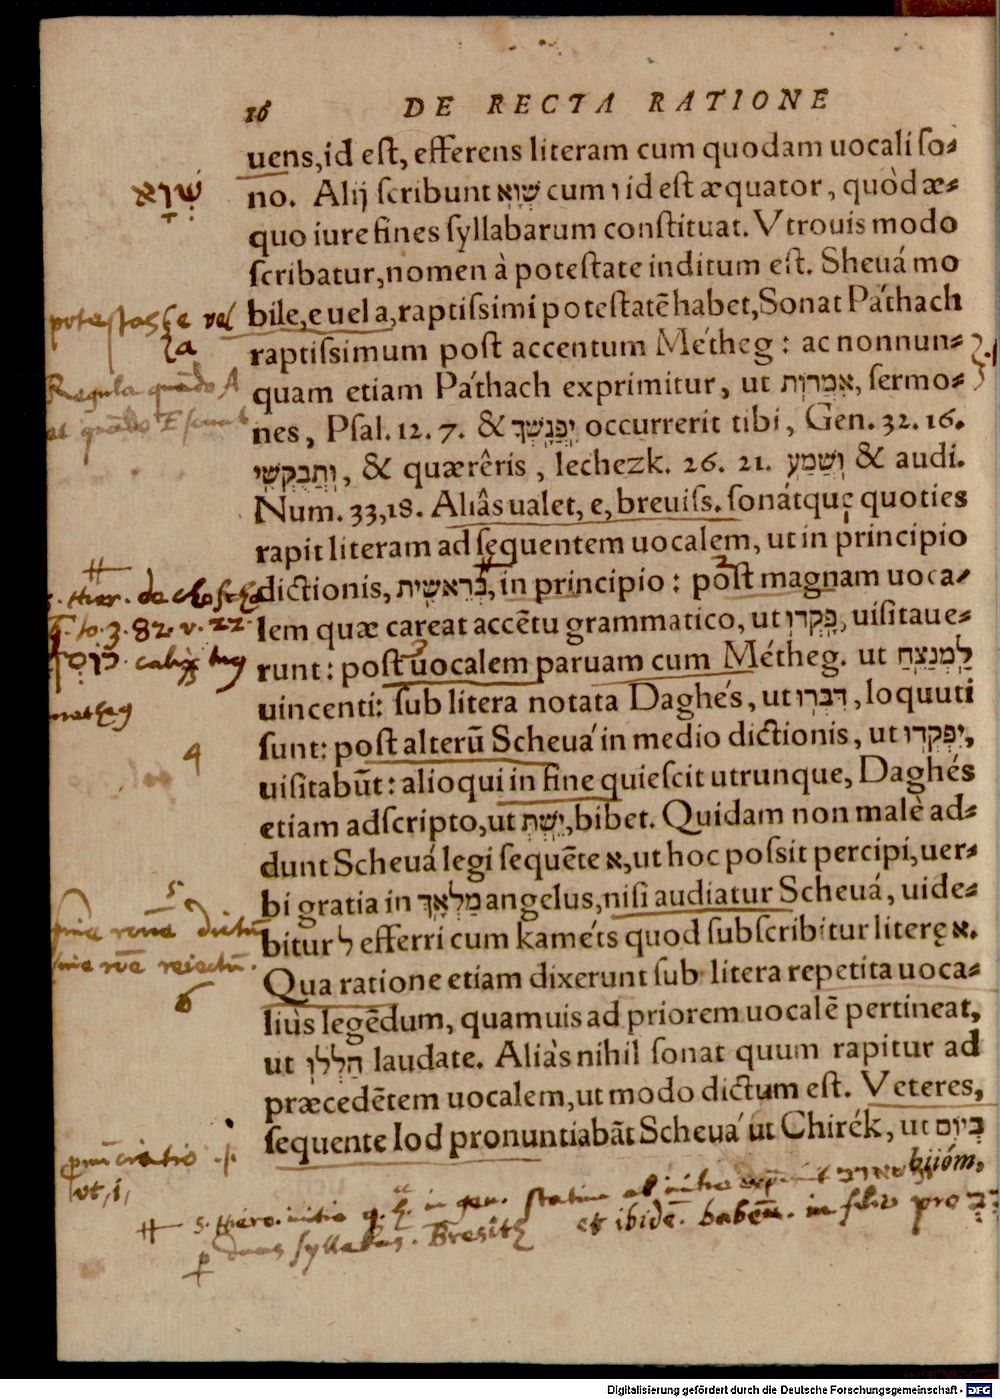 16 DE RECTA RATIONE
uens, id est, efferens literam cum quodam uocali so-
no. Alij scribunt שְׁוָא cum ו id est æquator, quòd æ-
quo iure fines syllabarum constituat. Vtrouis modo
scribatur, nomen à potestate inditum est. Sheuá mo
bile, e uel a, raptissimi potestatē habet, Sonat Páthach
raptissimum post accentum Métheg: ac nonnun-
quam etiam Páthach exprimitur, ut אִמֲרוֹת, sermo-
nes, Psal. 12. 7. & יְפַגֲּשְׁךָ occurrerit tibi, Gen. 32. 16.
וּתְבֻקֲשִׁי, & quærêris, Iechezk. 26. 21. וּשֲׁמַע & audi.
Num. 33,18. Aliâs ualet, e, breuiss. sonátque quoties
rapit literam ad sequentem uocalem, ut in principio
dictionis, בְּרֵאשִׁית, in principio: post magnam uoca-
lem quæ careat accētu grammatico, ut פָּקְדוּ, uisitaue-
runt: post uocalem paruam cum Métheg. ut לַמְנַצֵּחַ
uincenti: sub litera notata Daghés, ut דִּבְּרוּ, loquuti
sunt: post alterū Scheuá in medio dictionis, ut יִפְקְדוּ,
uisitabūt: alioqui in fine quiescit utrunque, Daghés
etiam adscripto, ut יֵשְׁתְּ, bibet. Quidam non malè ad-
dunt Scheuá legi sequēte א, ut hoc possit percipi, uer-
bi gratia in מַלְאָךְ angelus, nisi audiatur Scheuá, uide-
bitur ל efferri cum kaméts quod subscribitur literę א.
Qua ratione etiam dixerunt sub litera repetita uoca-
liùs legēdum, quamuis ad priorem uocalē pertineat,
ut הַלְלוּ laudate. Aliàs nihil sonat quum rapitur ad
præcedētem uocalem, ut modo dictum est. Veteres,
sequente Iod pronuntiabāt Scheuá ut Chirék, ut בְּיוֹם
bijóm,
שְׁוָא
potestas
vel
a
Regula quādo A
4
5
6
ut, i,
Digitalisierung gefördert durch die Deutsche Forschungsgemeinschaft - DFG